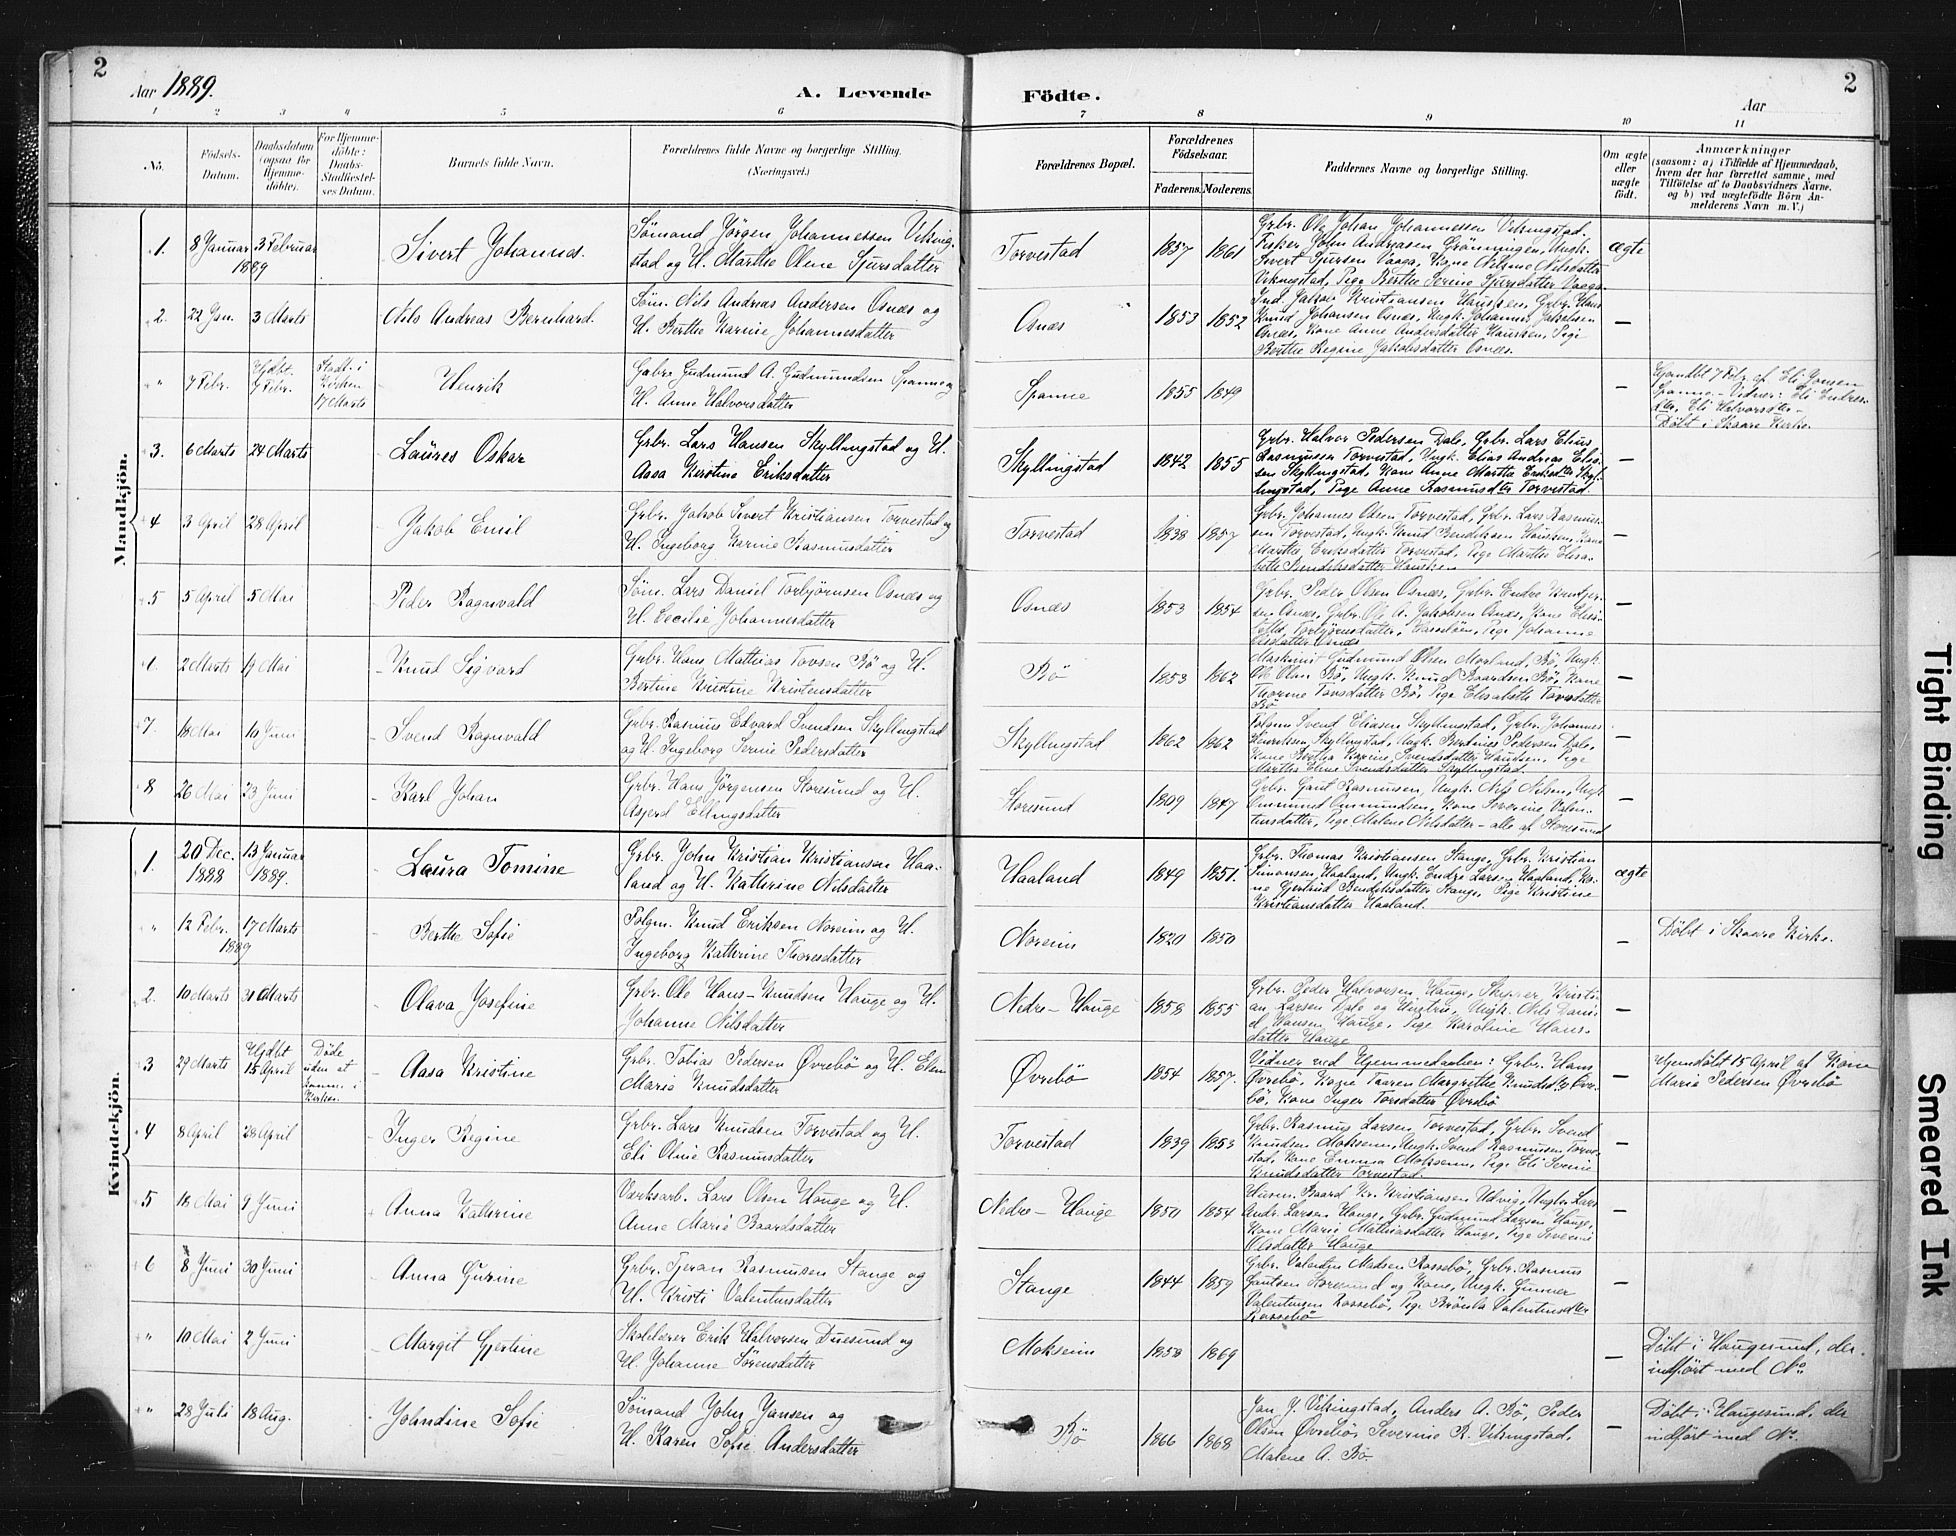 2
Aar 1889.
A. Levende
Födte.
Aar
2
1 2 3 4 5 6 7 8 9 10 11
No.
Födsels-
Datum.
Daabsdatum
(ogsaa for
Hjemme-
döbte).
For Hjemme-
döbte:
Daabs-
Stadfæstel-
ses Datum.
Barnets fulde Navn.
Forældrenes fulde Navne og borgerlige Stilling.
(Næringsvei.)
Forældrenes Bopæl.
Forældrenes
Födselsaar.
Faderens. Moderens.
Faddernes Navne og borgerlige Stilling.
Om ægte
eller
uægte
födt.
Anmærkninger
(saasom: a) i Tilfælde af Hjemmedaab,
hvem der har forrettet samme, med
Tilföielse af to Daabsvidners Navne,
og b) ved uægtefödte Börn An-
melderens Navn m. V.)
Mandkjön.
1. 8 Januar 3 Februar
1889
Sivert Johannes.
Sömand Jörgen Johannessen Viking-
stad og H. Marthe Oline Sjursdatter
Torvestad 1857 1861
Grbr. Ole Johan Johannessen Vikingstad.
Fisker John Andreasen Grönningen, Ungk.
Sivert Sjursen Vaaga, Kone Nilsine Nilsdatter
Vikingstad, Pige Berthe Serine Sjursdatter Vaaga
ægte
2. 22 Jan. 3 Marts
Nils Andreas Bernhard.
Söm. Nils Andreas Andersen Osnæs og
H. Berthe Karine Johannesdatter
Osnæs 1853 1852
Ind. Jakob Kristiansen Hausken, Grbr. Hans
Knud Johansen Osnæs, Ungk. Johannes Jakobsen
Osnæs, Kone Anne Andersdatter Hausken, Pige
Berthe Regine Jakobsdatter Osnæs.
—
" 7 Febr. Hjdbt. 7 Febr.
Stadf. i
Kirken
17 Marts
Henrik
Gabr. Gudmund A. Gudmundsen Spanne og
H. Anne Halvorsdatter
Spanne 1855 1849
—
Hjemdbt 7 Febr. af Eli Jonsen
Spanne. - Vidner: Eli Endres-
dtr, Eli Halvorsdtr -
Döbt i Skaare Kirke.
3. 6 Marts 24 Marts
Laures Oskar
Grbr. Lars Hansen Skyllingstad og H.
Aasa Kirstine Eriksdatter
Skyllingstad 1842 1855
Grbr. Halvor Pedersen Dale, Grbr. Lars Elius
Rasmussen Torvestad, Ungk. Elias Andreas Elia-
sen Skyllingstad, Kone Anne Marthe Eriksdtr Skyl-
lingstad, Pige Anne Rasmusdtr Torvestad.
—
4 3 April 28 April
Jakob Emil
Grbr. Jakob Sivert Kristiansen Torvestad og
H. Ingeborg Karine Rasmusdatter
Torvestad 1838 1857
Grbr. Johannes Olsen Torvestad, Grbr. Lars Rasmus-
sen Torvestad, Ungk. Knud Bendiksen Hausken, Kone
Marthe Eriksdatter Torvestad, Pige Marthe Elisa-
beth Bendiksdatter Hausken
—
5 5 April 5 Mai
Peder Ragnvald
Söm. Lars Daniel Torbjörnsen Osnæs og
H. Cecilie Johannesdatter
Osnæs 1853 1854
Grbr. Peder Olsen Osnæs, Grbr. Endre
sen Osnæs, Grbr. Ole A. Jakobsen Osnæs, Kone Elisa-
beth Torbjörnsdatter, Pige Johanne
Osnæs
—
2 Marts 19 Mai
Knud Sigvard
Grbr. Hans Mathias Tovsen Bö og H.
Bertine Kristine Kristensdatter
Bö 1853 1862
Maskinist Gudmund Olsen Morland, Bö, Ungk.
Ole Olsen Bö, Ungk. Knud Baardsen, Bö, Kone
Thorine Tovsdatter Bö, Pige Elisabeth Tovsdatter
Bö
—
7. 18 Mai 10 Juni
Svend Ragnvald
Grbr. Rasmus Edvard Svendsen Skyllingstad
og H. Ingeborg Serine Pedersdatter
Skyllingstad 1862 1862
Folgm. Svend Eliasen Skyllingstad, Grbr. Johannes
Henriksen Skyllingstad, Ungk. Bertinius Pedersen Dale,
Kone Bertha Karine Svendsdatter Hausken, Pige
Martha Eline Svendsdatter Skyllingstad.
—
8 26 Mai 23 Juni
Karl Johan
Grbr. Hans Jörgensen Storesund og H.
Asjerd Ellingsdatter
Storesund 1809 1847
Grbr. Gaut Rasmussen, Ungk. Nils Nilsen, Ungk.
Ommund Ommundsen, Kone Severine Valen-
tinsdatter, Pige Malene Nilsdatter - alle af Storesund
—
Kvindekjön.
1. 20 Dec. 13 Januar
1888 1889.
Laura Tomine
Grbr. John Kristian Kristiansen Haa-
land og H. Kathrine Nilsdatter
Haaland 1849 1851.
Grbr. Thomas Kristiansen Stange, Grbr. Kristian
Simonsen Haaland, Ungk. Endre Larsen Haaland, Ko-
ne Gjertrud Bendiksdatter Stange, Pige Kristine
Kristiansdatter Haaland.
ægte
" 12 Febr. 17 Marts
1889
Berthe Sofie
Folgm. Knud Eriksen Noreim og H.
Ingeborg Kathrine Thoresdatter
Noreim 1820 1850
—
Döbt i Skaare Kirke.
2. 10 Marts 31 Marts
Olava Josefine
Grbr. Ole Hans-Knudsen Hauge og H.
Johanne Nilsdatter
Nedre-Hauge 1858 1855
Grbr. Peder Halvorsen Hauge, Skipper Kristi-
an Larsen Dale og Hustru, Ungk. Nils Dani-
el Hansen Hauge, Pige Karoline Hans-
datter Hauge
—
3 29 Marts Hjdbt 15 April
Döde
uden at
komme i
Kirken.
Aasa Kristine
Grbr. Tobias Pedersen Övrebö og H. Elen
Maria Knudsdatter
Övrebö 1854 1857.
Vidner ved Hjemmedaaben: Grbr. Hans
Övrebö, Kone Taaren Margrethe Knudsdtr Övre-
bö, Kone Inger Torsdatter Övrebö
—
Hjemdöbt 15 April af Kone
Maria Pedersen Övrebö
4 8 April 28 April
Inger Regine
Grbr. Lars Knudsen Torvestad og H.
Eli Oline Rasmusdatter
Torvestad 1839 1853
Grbr. Rasmus Larsen, Torvestad, Grbr. Svend
Knudsen Moksem, Ungk. Svend Rasmussen Torve-
stad, Kone Emma Moksem, Pige Eli Serine
Knudsdatter Torvestad.
—
5 18 Mai 9 Juni
Anna Kathrine
Værksarb. Lars Olsen Hauge og H.
Anne Marie Baardsdatter
Nedre-Hauge 1850 1854
Husm. Baard Kr. Kristiansen Udvig, Ungkr. Lars
Andr. Larsen Hauge, Grbr. Gudmund Larsen Hauge,
Kone Marie Mathiasdatter Hauge, Pige Severine
Olsdatter Hauge
—
6 8 Juni 30 Juni
Anna Gurine
Grbr. Tjeran Rasmusen Stange og
H. Kristi Valentinsdatter
Stange 1844 1859
Grbr. Valentin Madsen Rossebö, Grbr. Rasmus
Gautsen Storesund og Kone, Ungk. Gunner
Valentinsen Rossebö, Pige Brönla Valentinsdtr
Rossebö
—
" 10 Mai 2 Juni
Margit Gjertine
Skolelærer Erik Halvorsen Duesund og
H. Johanne Sörensdatter
Moksem 1858 1869
—
Döbt i Haugesund, der
indfört med No
" 28 Juli 18 Aug.
Johndine Sofie
Sömand John Jansen og
H. Karen Sofie Andersdatter
Bö 1866 1868
Jan J. Vikingstad, Anders A. Bö, Peder
Olsen Övrebö, Severine R. Vikingstad,
Malene A. Bö
—
Döbt i Haugesund, der
indfört med No.
Tight Binding
Smeared Ink